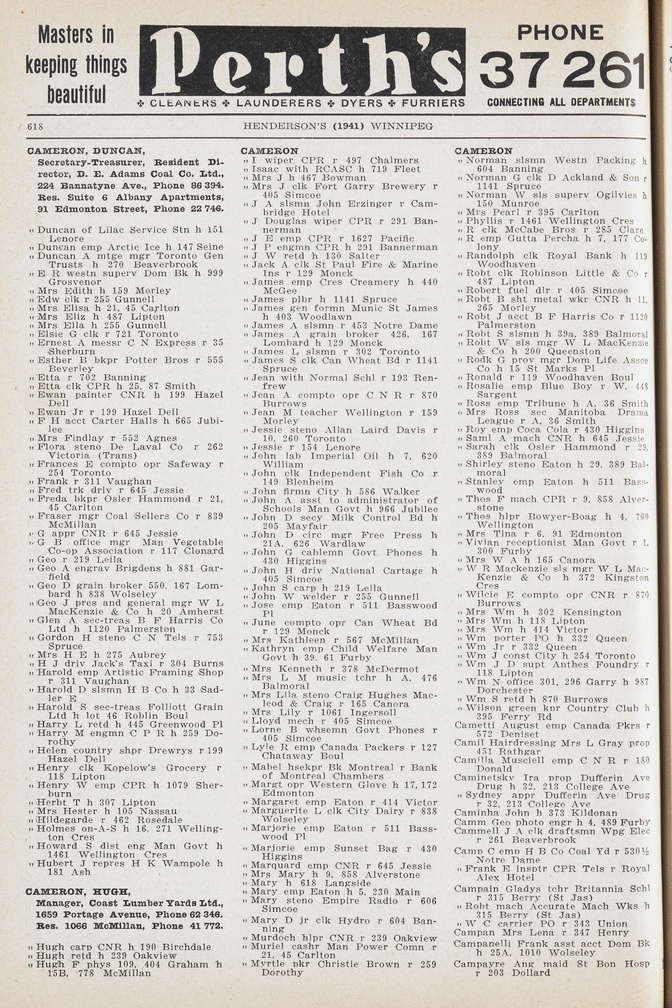 Masters in
keeping things
beautiful
Perth's
✤ CLEANERS ✤ LAUNDERERS ✤ DYERS ✤ FURRIERS
PHONE
37 261
CONNECTING ALL DEPARTMENTS
618
HENDERSON'S (1941) WINNIPEG
CAMERON, DUNCAN,
Secretary-Treasurer, Resident Di-
rector, D. E. Adams Coal Co. Ltd.,
224 Bannatyne Ave., Phone 86 394.
Res. Suite 6 Albany Apartments,
91 Edmonton Street, Phone 22 746.
" Duncan of Lilac Service Stn h 151
Lenore
" Duncan emp Arctic Ice h 147 Seine
" Duncan A mtge mgr Toronto Gen
Trusts h 270 Beaverbrook
" E R westn superv Dom Bk h 999
Grosvenor
" Mrs Edith h 159 Morley
" Edw clk r 255 Gunnell
" Mrs Elisa h 21, 45 Carlton
" Mrs Eliz h 487 Lipton
" Mrs Ella h 255 Gunnell
" Elsie G clk r 721 Toronto
" Ernest A messr C N Express r 35
Sherburn
" Esther B bkpr Potter Bros r 555
Beverley
" Etta r 702 Banning
" Etta clk CPR h 25, 87 Smith
" Ewan painter CNR h 199 Hazel
Dell
" Ewan Jr r 199 Hazel Dell
" F H acct Carter Halls h 665 Jubi-
lee
" Mrs Findlay r 552 Agnes
" Flora steno De Laval Co r 262
Victoria (Trans)
" Frances E compto opr Safeway r
254 Toronto
" Frank r 311 Vaughan
" Fred trk driv r 645 Jessie
" Freda bkpr Osler Hammond r 21,
45 Carlton
" Fraser mgr Coal Sellers Co r 839
McMillan
" G appr CNR r 645 Jessie
" G B office mgr Man Vegetable
Co-op Association r 117 Clonard
" Geo r 219 Leila
" Geo A engrav Brigdens h 881 Gar-
field
" Geo D grain broker 550, 167 Lom-
bard h 838 Wolseley
" Geo J pres and general mgr W L
MacKenzie & Co h 20 Amherst
" Glen A sec-treas B F Harris Co
Ltd h 1120 Palmerston
" Gordon H steno C N Tels r 753
Spruce
" Mrs H E h 275 Aubrey
" H J driv Jack's Taxi r 304 Burns
" Harold emp Artistic Framing Shop
r 311 Vaughan
" Harold D slsmn H B Co h 33 Sad-
ler E
" Harold S sec-treas Folliott Grain
Ltd h lot 46 Roblin Boul
" Harry L retd h 445 Greenwood Pl
" Harry M engmn C P R h 259 Do-
rothy
" Helen country shpr Drewrys r 199
Hazel Dell
" Henry clk Kopelow's Grocery r
118 Lipton
" Henry W emp CPR h 1079 Sher-
burn
" Herbt T h 307 Lipton
" Mrs Hester h 105 Nassau
" Hildegarde r 462 Rosedale
" Holmes on-A-S h 16, 271 Welling-
ton Cres
" Howard S dist eng Man Govt h
1461 Wellington Cres
" Hubert J repres H K Wampole h
181 Ash
CAMERON, HUGH,
Manager, Coast Lumber Yards Ltd.,
1659 Portage Avenue, Phone 62 346.
Res. 1066 McMillan, Phone 41 772.
" Hugh carp CNR h 190 Birchdale
" Hugh retd h 239 Oakview
" Hugh F phys 109, 404 Graham h
15B, 778 McMillan
CAMERON
" I wiper CPR r 497 Chalmers
" Isaac with RCASC h 719 Fleet
" Mrs J h 467 Bowman
" Mrs J clk Fort Garry Brewery r
405 Simcoe
" J A slsmn John Erzinger r Cam-
bridge Hotel
" J Douglas wiper CPR r 291 Ban-
nerman
" J E emp CPR r 1627 Pacific
" J P engmn CPR h 291 Bannerman
" J W retd h 130 Salter
" Jack A clk St Paul Fire & Marine
Ins r 129 Monck
" James emp Cres Creamery h 440
McGee
" James plbr h 1141 Spruce
" James gen formn Munic St James
h 403 Woodlawn
" James A slsmn r 453 Notre Dame
" James A grain broker 426, 167
Lombard h 129 Monck
" James L slsmn r 302 Toronto
" James S clk Can Wheat Bd r 1141
Spruce
" Jean with Normal Schl r 193 Ren-
frew
" Jean A compto opr C N R r 870
Burrows
" Jean M teacher Wellington r 159
Morley
" Jessie steno Allan Laird Davis r
10, 260 Toronto
" Jessie r 154 Lenore
" John lab Imperial Oil h 7, 620
William
" John clk Independent Fish Co r
149 Blenheim
" John firmn City h 586 Walker
" John A asst to administrator of
Schools Man Govt h 966 Jubilee
" John D secy Milk Control Bd h
205 Mayfair
" John D circ mgr Free Press h
21A, 626 Wardlaw
" John G cablemn Govt Phones h
430 Higgins
" John H driv National Cartage h
405 Simcoe
" John S carp h 219 Leila
" John W welder r 255 Gunnell
" Jose emp Eaton r 511 Basswood
Pl
" June compto opr Can Wheat Bd
r 129 Monck
" Mrs Kathleen r 567 McMillan
" Kathryn emp Child Welfare Man
Govt h 39, 61 Furby
" Mrs Kenneth r 378 McDermot
" Mrs L M music tchr h A, 476
Balmoral
" Mrs Lila steno Craig Hughes Mac-
leod & Craig r 165 Canora
" Mrs Lily r 1061 Ingersoll
" Lloyd mech r 405 Simcoe
" Lorne B whsemn Govt Phones r
405 Simcoe
" Lyle R emp Canada Packers r 127
Chataway Boul
" Mabel hsekpr Bk Montreal r Bank
of Montreal Chambers
" Margt opr Western Glove h 17, 172
Edmonton
" Margaret emp Eaton r 414 Victor
" Marguerite L clk City Dairy r 838
Wolseley
" Marjorie emp Eaton r 511 Bass-
wood Pl
" Marjorie emp Sunset Bag r 430
Higgins
" Marquard emp CNR r 645 Jessie
" Mrs Mary h 9, 858 Alverstone
" Mary h 618 Langside
" Mary emp Eaton h 5, 230 Main
" Mary steno Empire Radio r 606
Simcoe
" Mary D jr clk Hydro r 604 Ban-
ning
" Murdoch hlpr CNR r 239 Oakview
" Muriel cashr Man Power Comn r
21, 45 Carlton
" Myrtle pkr Christie Brown r 259
Dorothy
CAMERON
" Norman slsmn Westn Packing h
604 Banning
" Norman G clk D Ackland & Son r
1141 Spruce
" Norman W sls superv Ogilvies h
150 Munroe
" Mrs Pearl r 395 Carlton
" Phyllis r 1461 Wellington Cres
" R clk McCabe Bros r 285 Clare
" R emp Gutta Percha h 7, 177 Co-
lony
" Randolph clk Royal Bank h 119
Woodhaven
" Robt clk Robinson Little & Co r
487 Lipton
" Robert fuel dlr r 405 Simcoe
" Robt B sht metal wkr CNR h 11,
265 Morley
" Robt J acct B F Harris Co r 1120
Palmerston
" Robt S slsmn h 39a, 389 Balmoral
" Robt W sls mgr W L MacKenzie
& Co h 200 Queenston
" Rodk G prov mgr Dom Life Assce
Co h 15 St Marks Pl
" Ronald r 119 Woodhaven Boul
" Rosalie emp Blue Boy r W, 448
Sargent
" Ross emp Tribune h A, 36 Smith
" Mrs Ross sec Manitoba Drama
League r A, 36 Smith
" Roy emp Coca Cola r 430 Higgins
" Saml A mach CNR h 645 Jessie
" Sarah clk Osler Hammond r 29,
389 Balmoral
" Shirley steno Eaton h 29, 389 Bal-
moral
" Stanley emp Eaton h 511 Bass-
wood
" Thos F mach CPR r 9, 858 Alver-
stone
" Thos hlpr Bowyer-Boag h 4, 760
Wellington
" Mrs Tina r 6, 91 Edmonton
" Vivian receptionist Man Govt r 1,
300 Furby
" Mrs W A h 165 Canora
" W R Mackenzie sls mgr W L Mac-
Kenzie & Co h 372 Kingston
Cres
" Wilcie E compto opr CNR r 870
Burrows
" Mrs Wm h 302 Kensington
" Mrs Wm h 118 Lipton
" Mrs Wm h 414 Victor
" Wm porter PO h 332 Queen
" Wm Jr r 332 Queen
" Wm J const City h 254 Toronto
" Wm J D supt Anthes Foundry r
118 Lipton
" Wm N office 301, 296 Garry h 987
Dorchester
" Wm S retd h 870 Burrows
" Wilson green kpr Country Club h
395 Ferry Rd
Cametti August emp Canada Pkrs r
572 Deniset
Camil Hairdressing Mrs L Gray prop
451 Rathgar
Camilla Musciell emp C N R r 180
Donald
Caminetsky Ira prop Dufferin Ave
Drug h 32, 213 College Ave
" Sydney appr Dufferin Ave Drug
r 32, 213 College Ave
Caminha John h 373 Kildonan
Camm Geo photo engr h 4, 489 Furby
Cammell J A clk draftsmn Wpg Elec
r 261 Beaverbrook
Camn C emp H B Co Coal Yd r 530½
Notre Dame
" Frank E insptr CPR Tels r Royal
Alex Hotel
Campain Gladys tchr Britannia Schl
r 315 Berry (St Jas)
" Robt mach Accurate Mach Wks h
315 Berry (St Jas)
" W C carrier PO r 343 Union
Campan Mrs Lena r 347 Henry
Campanelli Frank asst acct Dom Bk
h 25A, 1010 Wolseley
Campayre Ang maid St Bon Hosp
r 203 Dollard